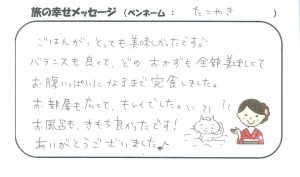 旅の幸せメッセージ (ペンネーム : たこやき )
ごはんが、とっても美味しかったです。
バランスも良くて、どの おかずも全部美味しくて
お腹いっぱいになるまで完食しました。
お部屋も広くて、キレイでした。
お風呂も、きもち良かったです!
ありがとうございました♪